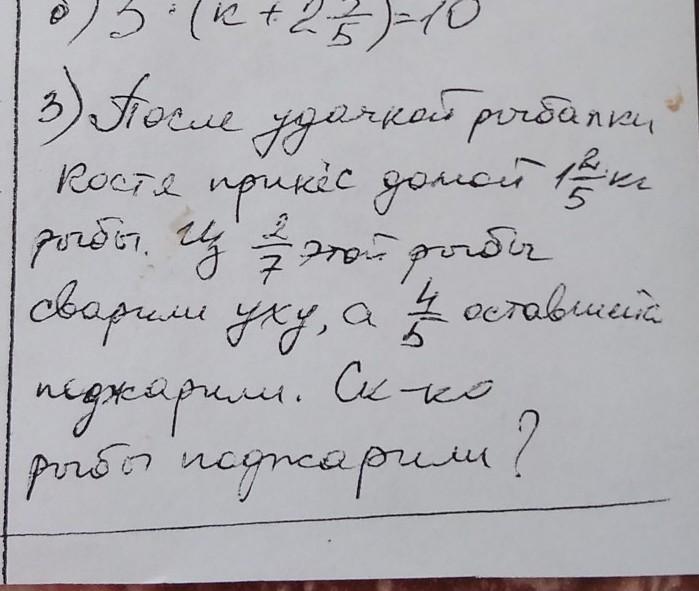 б) 5 · (к + 2 2/5) = 10
3) После удачной рыбалки
Костя принёс домой 1 2/5 кг
рыбы. Из 2/7 этой рыбы
сварили уху, а 4/5 оставшейся
поджарили. Ск-ко
рыбы поджарили?